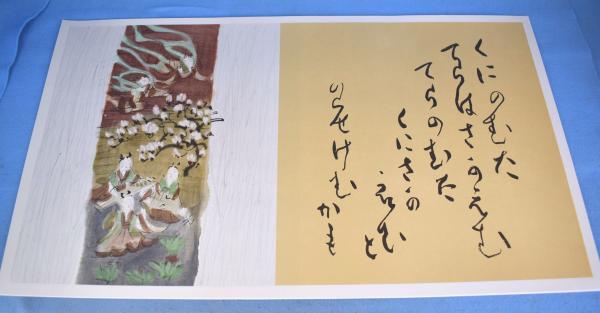 くにのむた
てらはさかえむ
てらのむた
くにさか
えむと
のらせけむかも